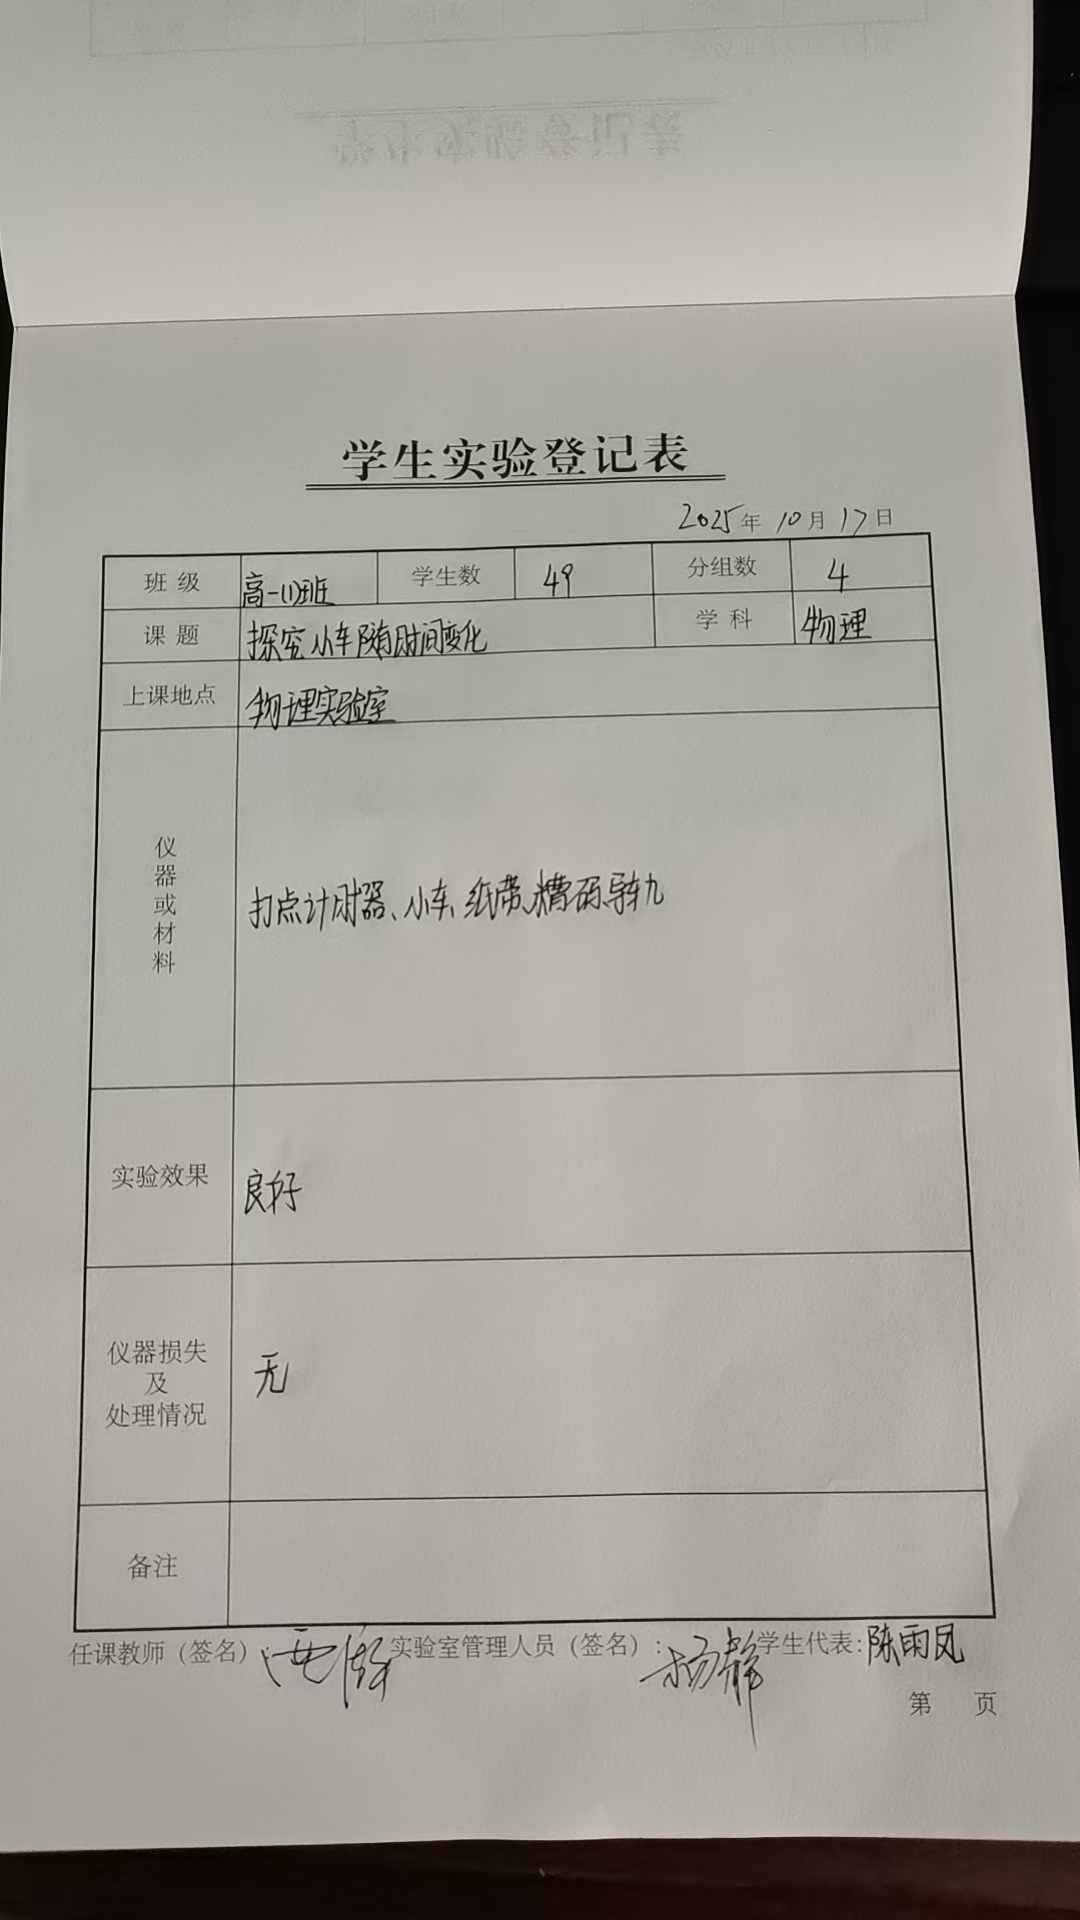 学生实验登记表
2025年 10月 17日
班 级 高一(1)班 学生数 49 分组数 4
课 题 探究小车随时间变化 学 科 物理
上课地点 物理实验室
仪器或材料 打点计时器、小车、纸带、槽码、导轨
实验效果 良好
仪器损失
及 无
处理情况
备注
任课教师（签名）: 实验室管理人员（签名）: 杨静 学生代表: 陈雨凤
第 页